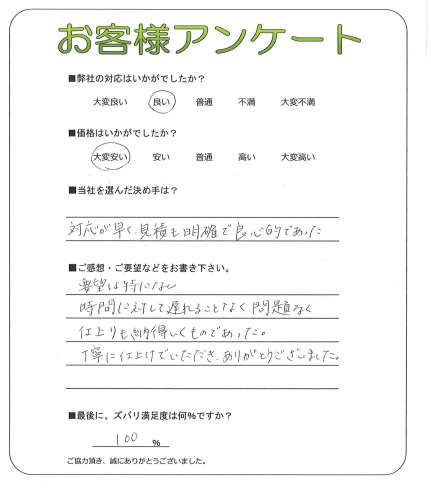 お客様アンケート
■弊社の対応はいかがでしたか？
大変良い 良い 普通 不満 大変不満
■価格はいかがでしたか？
大変安い 安い 普通 高い 大変高い
■当社を選んだ決め手は？
対応が早く、見積も明確で良心的であった
■ご感想・ご要望などをお書き下さい。
要望は特になし
時間に対して遅れることなく、問題なく
仕上りも納得いくものであった。
丁寧に仕上げていただき、ありがとうございました。
■最後に、ズバリ満足度は何％ですか？
100 ％
ご協力頂き、誠にありがとうございました。